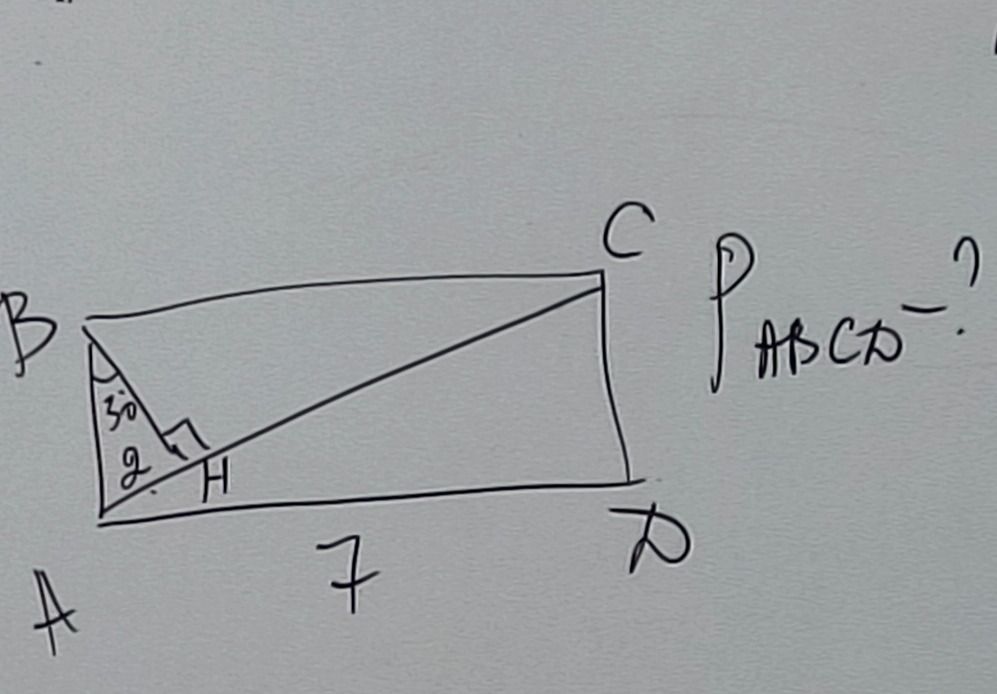 C
P ABCD - ?
B
30
2
H
7
D
A